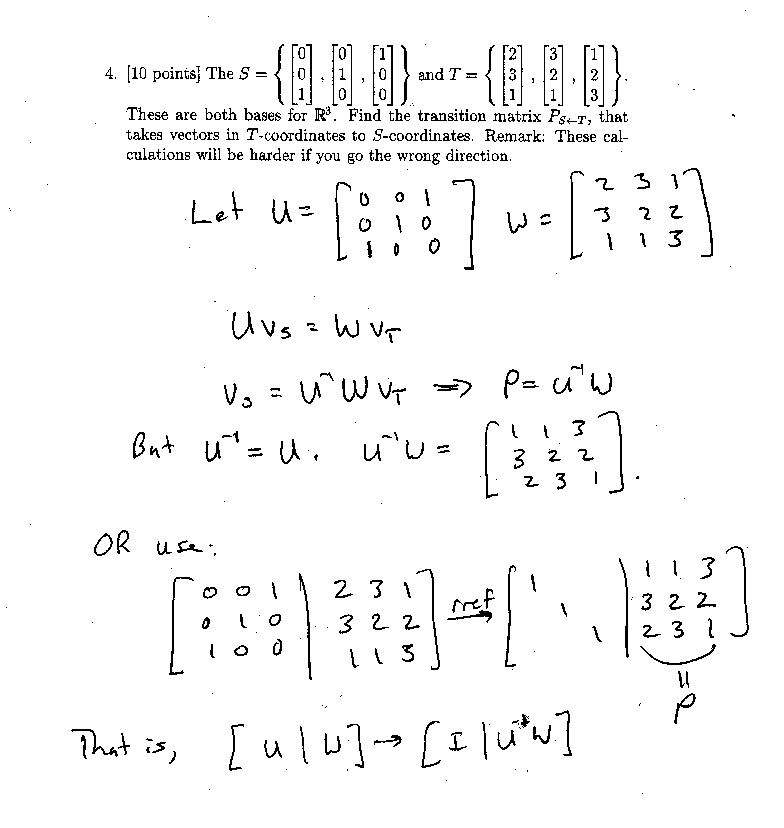 4. [10 points] The S = { [0 0 1], [0 1 0], [1 0 0] } and T = { [2 3 1], [3 2 1], [1 2 3] }.
These are both bases for ℝ³. Find the transition matrix P_{S←T}, that
takes vectors in T-coordinates to S-coordinates. Remark: These cal-
culations will be harder if you go the wrong direction.
Let U = [ 0 0 1 ; 0 1 0 ; 1 0 0 ] W = [ 2 3 1 ; 3 2 2 ; 1 1 3 ]
U v_S = W v_T
v_S = U⁻¹ W v_T ⟹ P = U⁻¹ W
But U⁻¹ = U. U⁻¹ W = [ 1 1 3 ; 3 2 2 ; 2 3 1 ].
OR use:
[ 0 0 1 | 2 3 1 ; 0 1 0 | 3 2 2 ; 1 0 0 | 1 1 3 ] rref → [ 1 1 1 | 1 1 3 ; 3 2 2 ; 2 3 1 ]
=
P
That is, [ U | W ] → [ I | U⁻¹ W ]